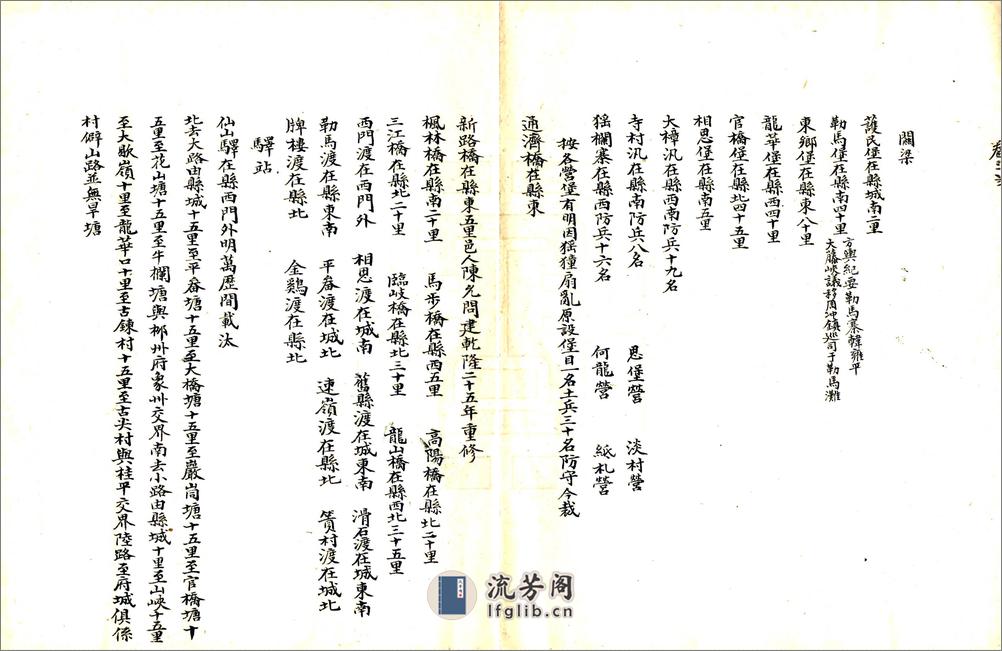 關梁
護民堡在縣城南二里
勒馬堡在縣南四十里 方輿紀要勒馬寨韓雍平
大藤峽議移周沖鎮巡司于勒馬灘
東鄉堡在縣東八十里
龍華堡在縣西四十里
官橋堡在縣北四十五里
相思堡在縣南五里
大樟汛在縣西南防兵十九名
寺村汛在縣南防兵八名 思堡營 淡村營
猺欄寨在縣西防兵十六名 何龍營 紙札營
按各營堡有明因猺獞扇亂原設堡目一名土兵三十名防守今裁
通濟橋在縣東
新路橋在縣東五里邑人陳允問建乾隆二十五年重修
楓林橋在縣南二十里 馬步橋在縣西五里 高陽橋在縣北二十里
三江橋在縣北二十里 臨岐橋在縣北三十里 龍山橋在縣西北三十五里
西門渡在西門外 相思渡在城南 舊縣渡在城東南 滑石渡在城東南
勒馬渡在縣東南 平畨渡在城北 速嶺渡在縣北 簣村渡在城北
牌樓渡在縣北 金鷄渡在縣北
驛站
仙山驛在縣西門外明萬歷間裁汰
北去大路由縣城十五里至平畨塘十五里至大橋塘十五里至巖峝塘十五里至官橋塘十
五里至花山塘十五里至牛欄塘與柳州府象州交界南去小路由縣城十里至山峽十五里
至大歇嶺十里至龍華口十里至古鍊村十五里至古尖村與桂平交界陸路至府城俱係
村僻山路並無旱塘
流芳阁
lfglib.cn